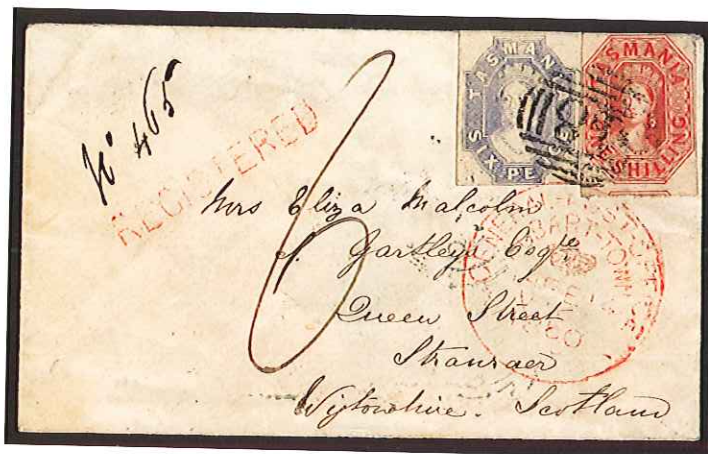 No 465
REGISTERED
TASMAN
SIX PE
TASMANIA
ONE SHILLING
6
Mrs Eliza Malcolm
Gartleys
Queen Street
Stranraer
Wigtonshire. Scotland
GENERAL POST OFFICE
HOBART TOWN